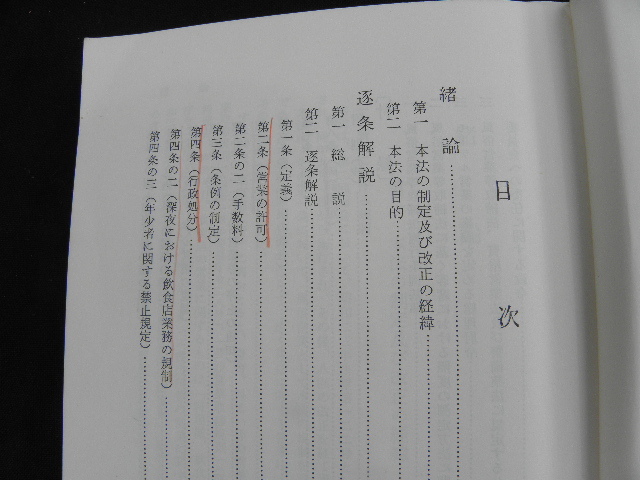 目次
緒論
第一 本法の制定及び改正の経緯
第二 本法の目的
逐条解説
第一 総説
第二 逐条解説
第一条(定義)
第二条(営業の許可)
第二条の二(手数料)
第三条(条例の制定)
第四条(行政処分)
第四条の二(深夜における飲食店業務の規制)
第四条の三(年少者に関する禁止規定)